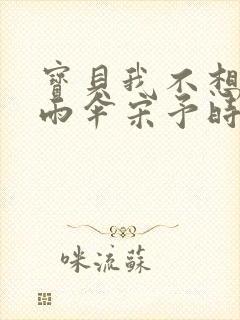 寶貝我不想
雨傘宋予時
咪流蘇